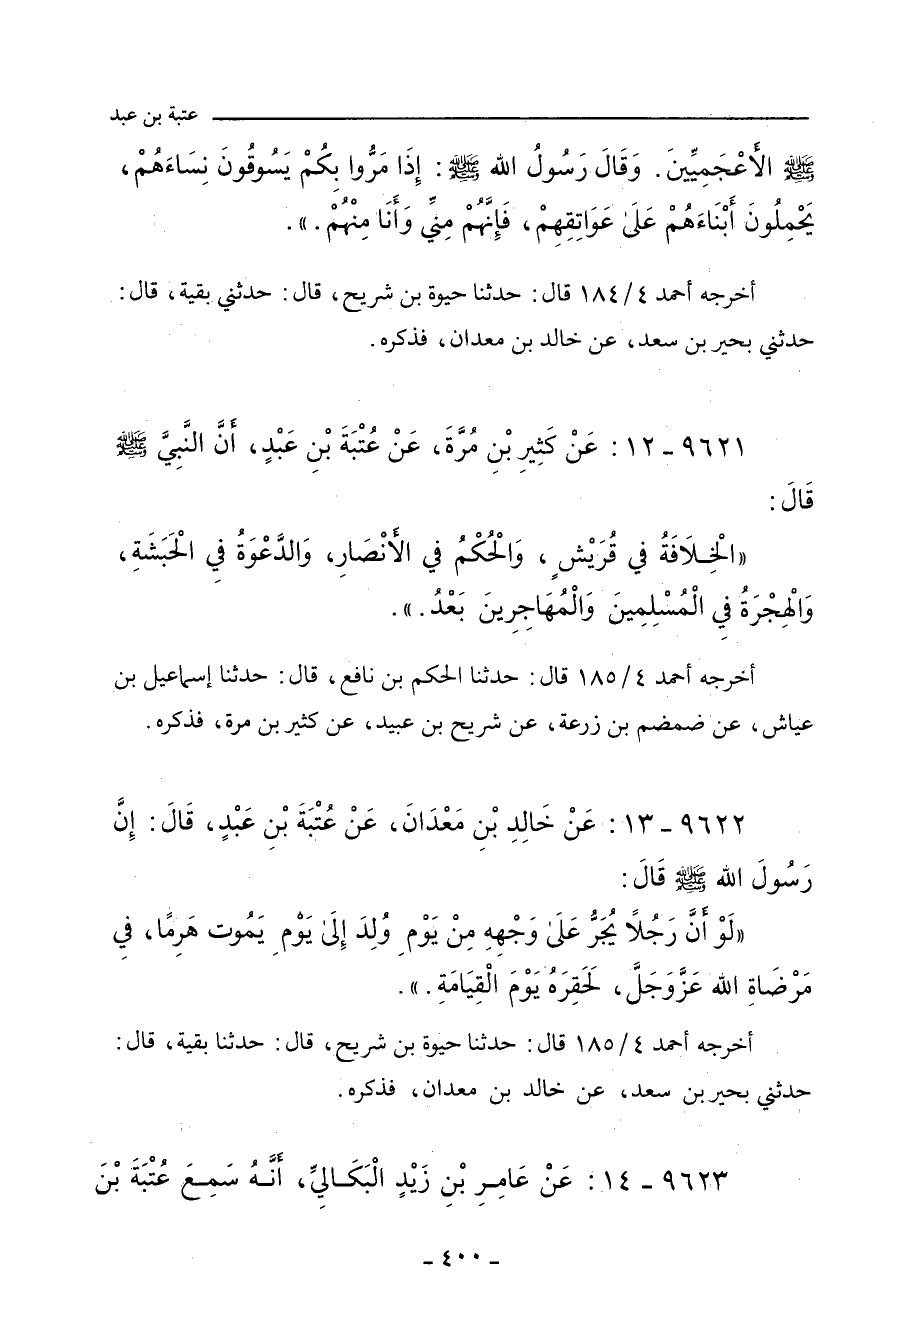 عتبة بن عبد
ﷺ الأَعْجَمِيِّينَ. وَقَالَ رَسُولُ الله ﷺ: إِذَا مَرُّوا بِكُمْ يَسُوقُونَ نِسَاءَهُمْ،
يَحْمِلُونَ أَبْنَاءَهُمْ عَلَىٰ عَوَاتِقِهِمْ، فَإِنَّهُمْ مِنِّي وَأَنَا مِنْهُمْ.».
أخرجه أحمد ٤/١٨٤ قال: حدثنا حيوة بن شريح، قال: حدثني بقية، قال:
حدثني بحير بن سعد، عن خالد بن معدان، فذكره.
٩٦٢١ - ١٢: عَنْ كَثِيرِ بْنِ مُرَّةَ، عَنْ عُتْبَةَ بْنِ عَبْدٍ، أَنَّ النَّبِيَّ ﷺ
قَالَ:
«الْخِلَافَةُ فِي قُرَيْشٍ، وَالْحُكْمُ فِي الأَنْصَارِ، وَالدَّعْوَةُ فِي الْحَبَشَةِ،
وَالْهِجْرَةُ فِي الْمُسْلِمِينَ وَالْمُهَاجِرِينَ بَعْدُ.».
أخرجه أحمد ٤/١٨٥ قال: حدثنا الحكم بن نافع، قال: حدثنا إسماعيل بن
عياش، عن ضمضم بن زرعة، عن شريح بن عبيد، عن كثير بن مرة، فذكره.
٩٦٢٢ - ١٣: عَنْ خَالِدِ بْنِ مَعْدَانَ، عَنْ عُتْبَةَ بْنِ عَبْدٍ، قَالَ: إِنَّ
رَسُولَ الله ﷺ قَالَ:
«لَوْ أَنَّ رَجُلًا يُجَرُّ عَلَىٰ وَجْهِهِ مِنْ يَوْمِ وُلِدَ إِلَىٰ يَوْمِ يَمُوت هَرِمًا، فِي
مَرْضَاةِ الله عَزَّوَجَلَّ، لَحَقِرَهُ يَوْمَ الْقِيَامَةِ.».
أخرجه أحمد ٤/١٨٥ قال: حدثنا حيوة بن شريح، قال: حدثنا بقية، قال:
حدثني بحير بن سعد، عن خالد بن معدان، فذكره.
٩٦٢٣ - ١٤: عَنْ عَامِرِ بْنِ زَيْدٍ الْبَكَالِيِّ، أَنَّهُ سَمِعَ عُتْبَةَ بْنَ
- ٤٠٠ -